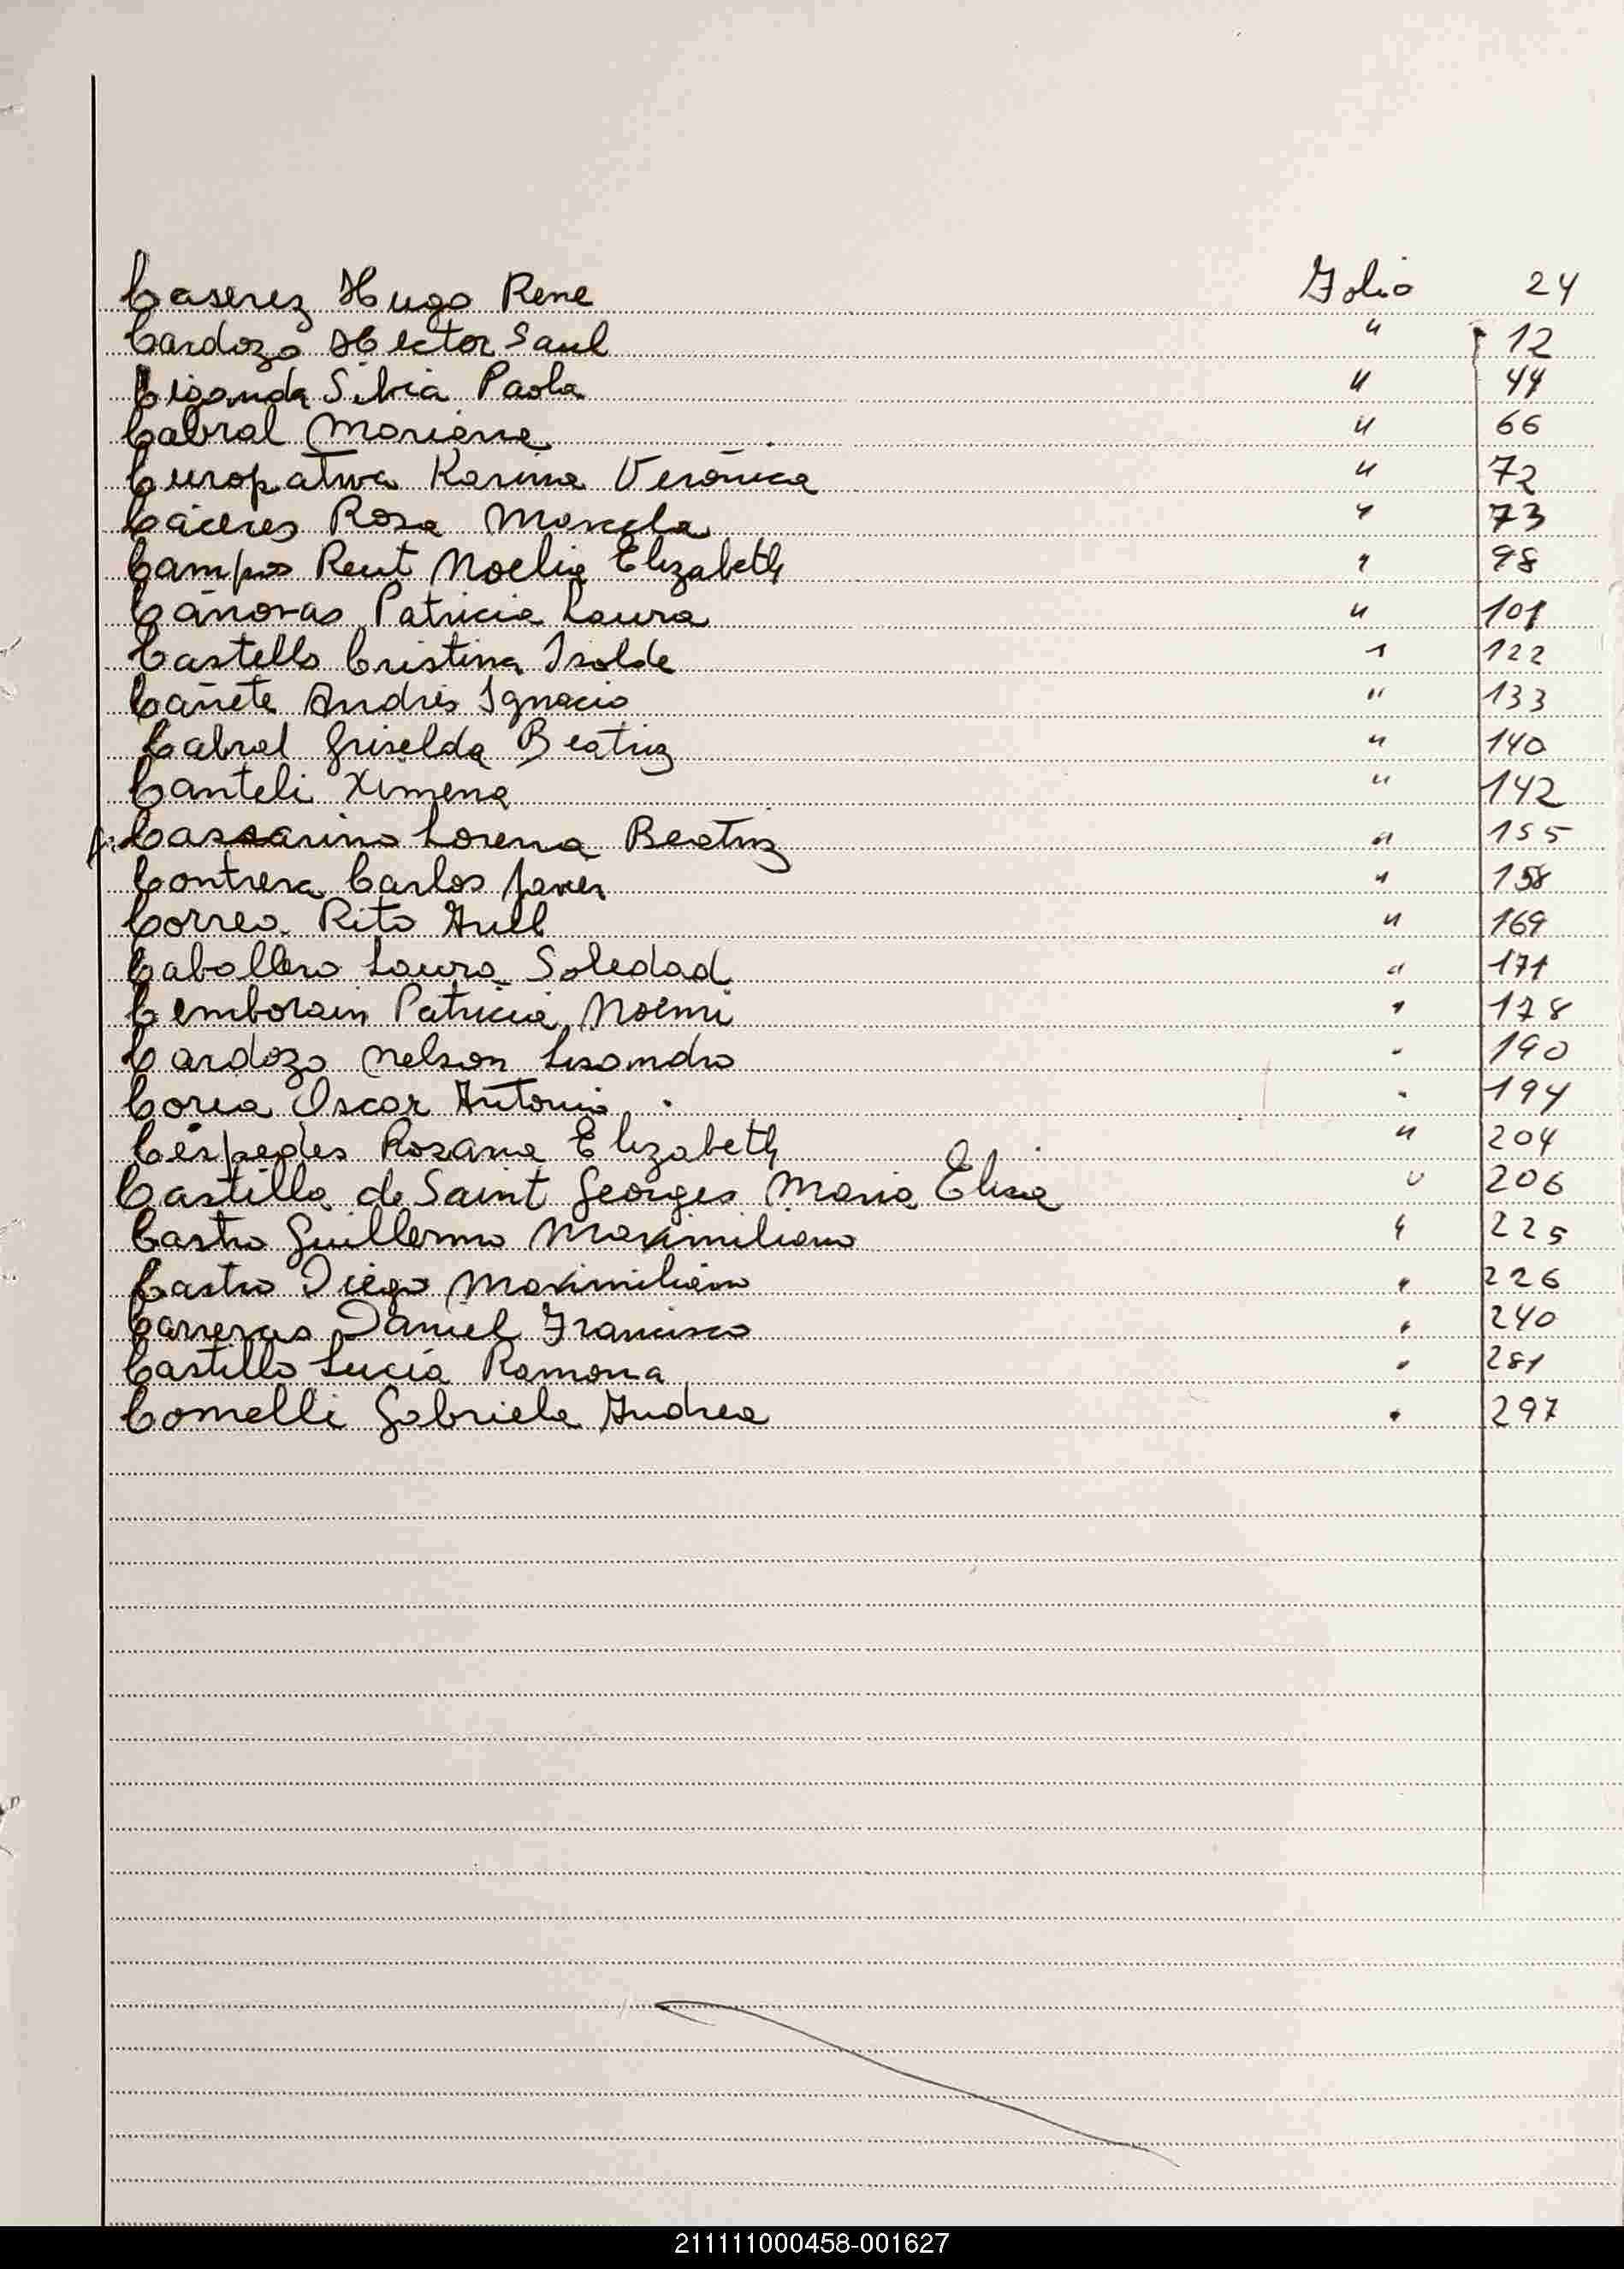 Caserez Hugo Rene Folio 24
Cardozo Hector Saul " 12
Ciganda Silvia Paola " 44
Cabral Mariana " 66
Karina Verónica " 72
Cáceres Rosa Marcela " 73
Campos Reut Noelia Elizabeth " 98
Cánovas Patricia Laura " 101
Castello Cristina Isolde " 122
Cañete Andrés Ignacio " 133
Cabral Griselda Beatriz " 140
Canteli Ximena " 142
Cassarino Lorena Beatriz " 155
Contrera Carlos Javier " 158
Correa Rita " 169
Caballero Laura Soledad " 171
Cemborain Patricia Noemi " 178
Cardozo Nelson Lisandro " 190
Corea Oscar Antonio " 194
Céspedes Rosana Elizabeth " 204
Castilla de Saint Georges Maria Elisa " 206
Castro Guillermo Maximiliano " 225
Castro Diego Maximiliano " 226
Carreras Daniel Francisco " 240
Castillo Lucía Ramona " 281
Comelli Gabriela Andrea " 297
211111000458-001627